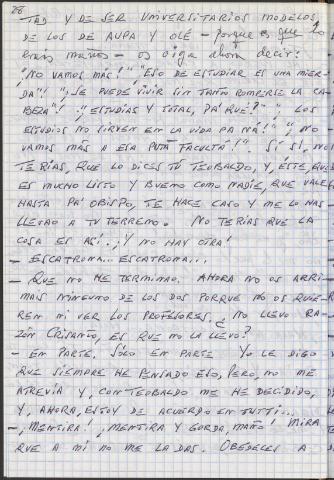 88
TAD Y DE SER UNIVERSITARIOS MODELOS
DE LOS DE AUPA Y OLÉ - porque es que lo
erais maños - os oiga ahora decir:
"NO VAMOS MAS!" "ESO DE ESTUDIAR ES UNA MIER-
DA"! "¡SE PUEDE VIVIR SIN TANTO ROMPERSE LA CA-
BEZA"! "¡ESTUDIAS Y TOTAL, PA' QUÉ?" "LOS
ESTUDIOS NO SIRVEN EN LA VIDA PA NÁ!" "¡NO
VAMOS MAS A ESA PUTA FACULTÁ!" SÍ, SÍ, NO
TE RÍAS, QUE LO DICES TÚ TEOBALDO, Y, ÉSTE, QUE
ES MUCHO LISTO Y BUENO COMO NADIE, QUE VALE
HASTA PA' OBISPO, TE HACE CASO Y ME LO HAS
LLEVAO A TU TERREMO. NO TE RÍAS QUE LA
COSA ES ASÍ. ¡Y NO HAY OTRA!
- ESCATROMA... ESCATROMA...
- QUE NO HE TERMINAO. AHORA NO OS ARRI-
MAIS NINGUNO DE LOS DOS PORQUE NO OS QUIE-
REN NI VER LOS PROFESORES. ¿NO LLEVO RA-
ZÓN CRISANTO, ES QUE NO LA LLEVO?
- EN PARTE. SÓLO EN PARTE YO LE DIGO
QUE SIEMPRE HE PENSADO ESO, PERO, NO ME
ATREVÍA Y, CON TEOBALDO ME HE DECIDIDO,
Y, AHORA, ESTOY DE ACUERDO EN TUTTI...
- ¡MENTIRA! ¡MENTIRA Y GORDA, MAÑO! MIRA
QUE A MI NO ME LA DAS. OBEDECES A